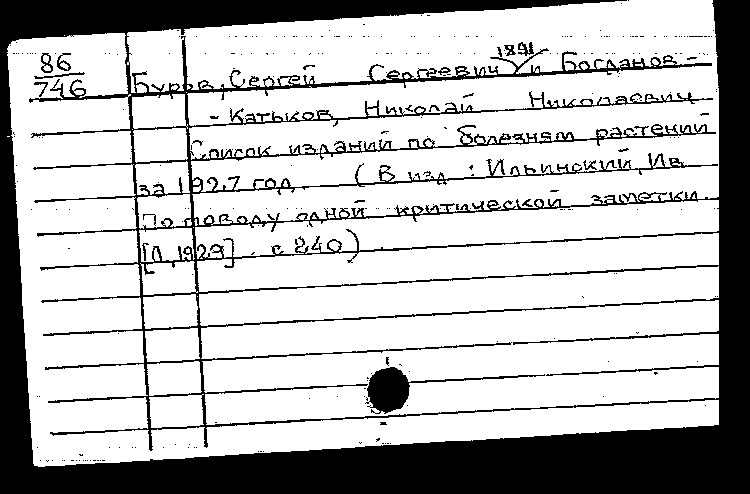 1891
86 Буров, Сергей Сергеевич и Богданов-
746 -Катьков, Николай Николаевич
Список изданий по болезням растений
за 1927 год. (В изд.: Ильинский, Ив.
По поводу одной критической заметки.
[Л, 1929]. с 240).